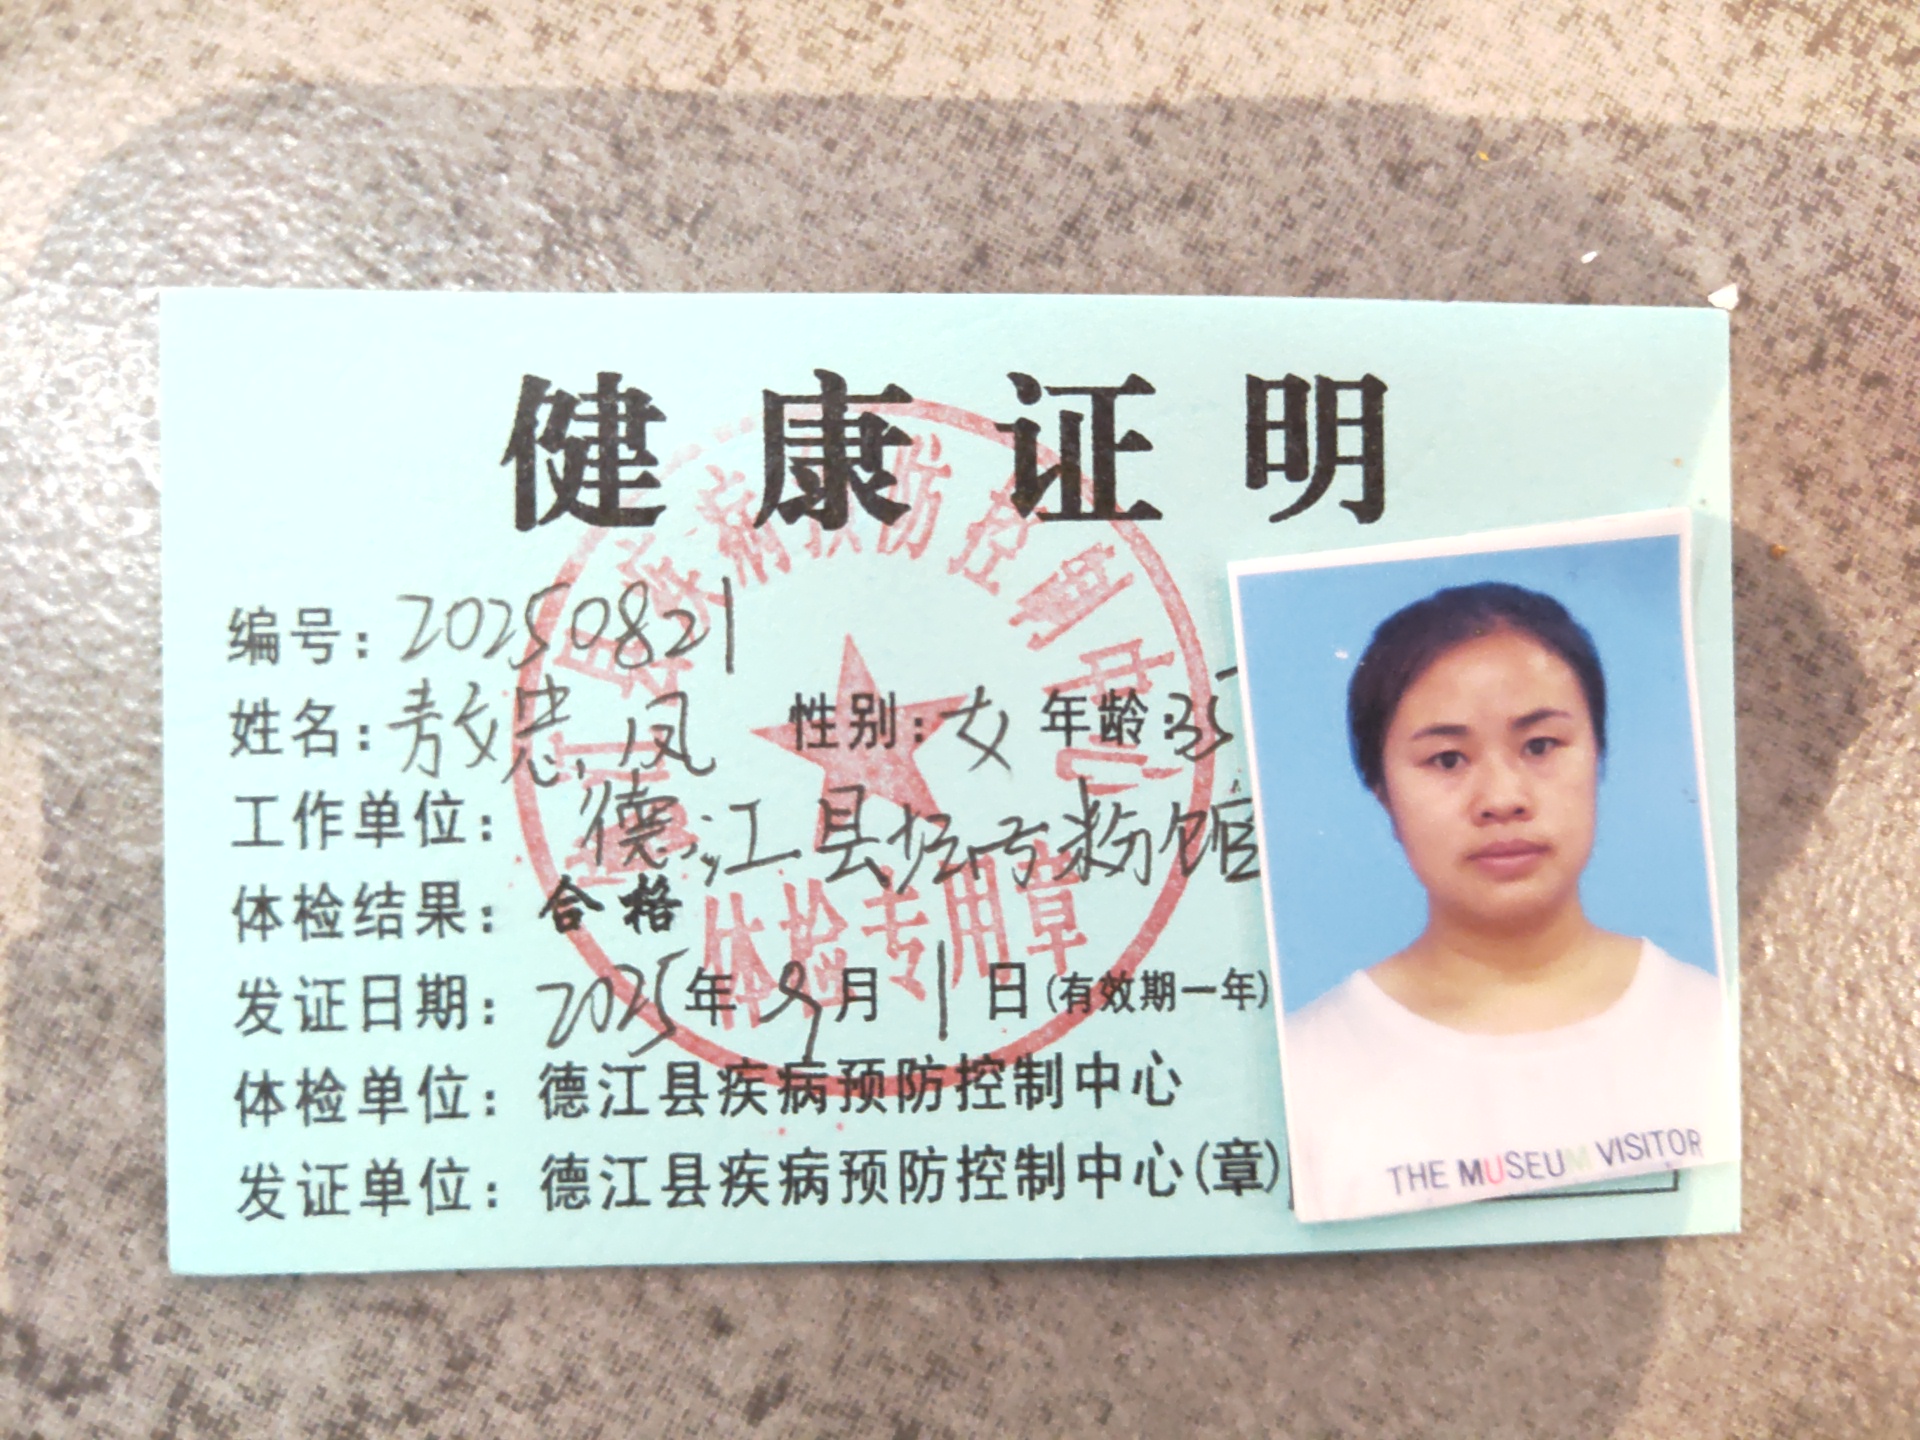 健康证明
编号：20250821
姓名：敖忠凤 性别：女 年龄：35
工作单位：德江县 粉馆
体检结果：合格
发证日期：2025年9月1日（有效期一年）
体检单位：德江县疾病预防控制中心
发证单位：德江县疾病预防控制中心（章）
德江县疾病预防控制中心
体检专用章
THE MUSEUM VISITOR